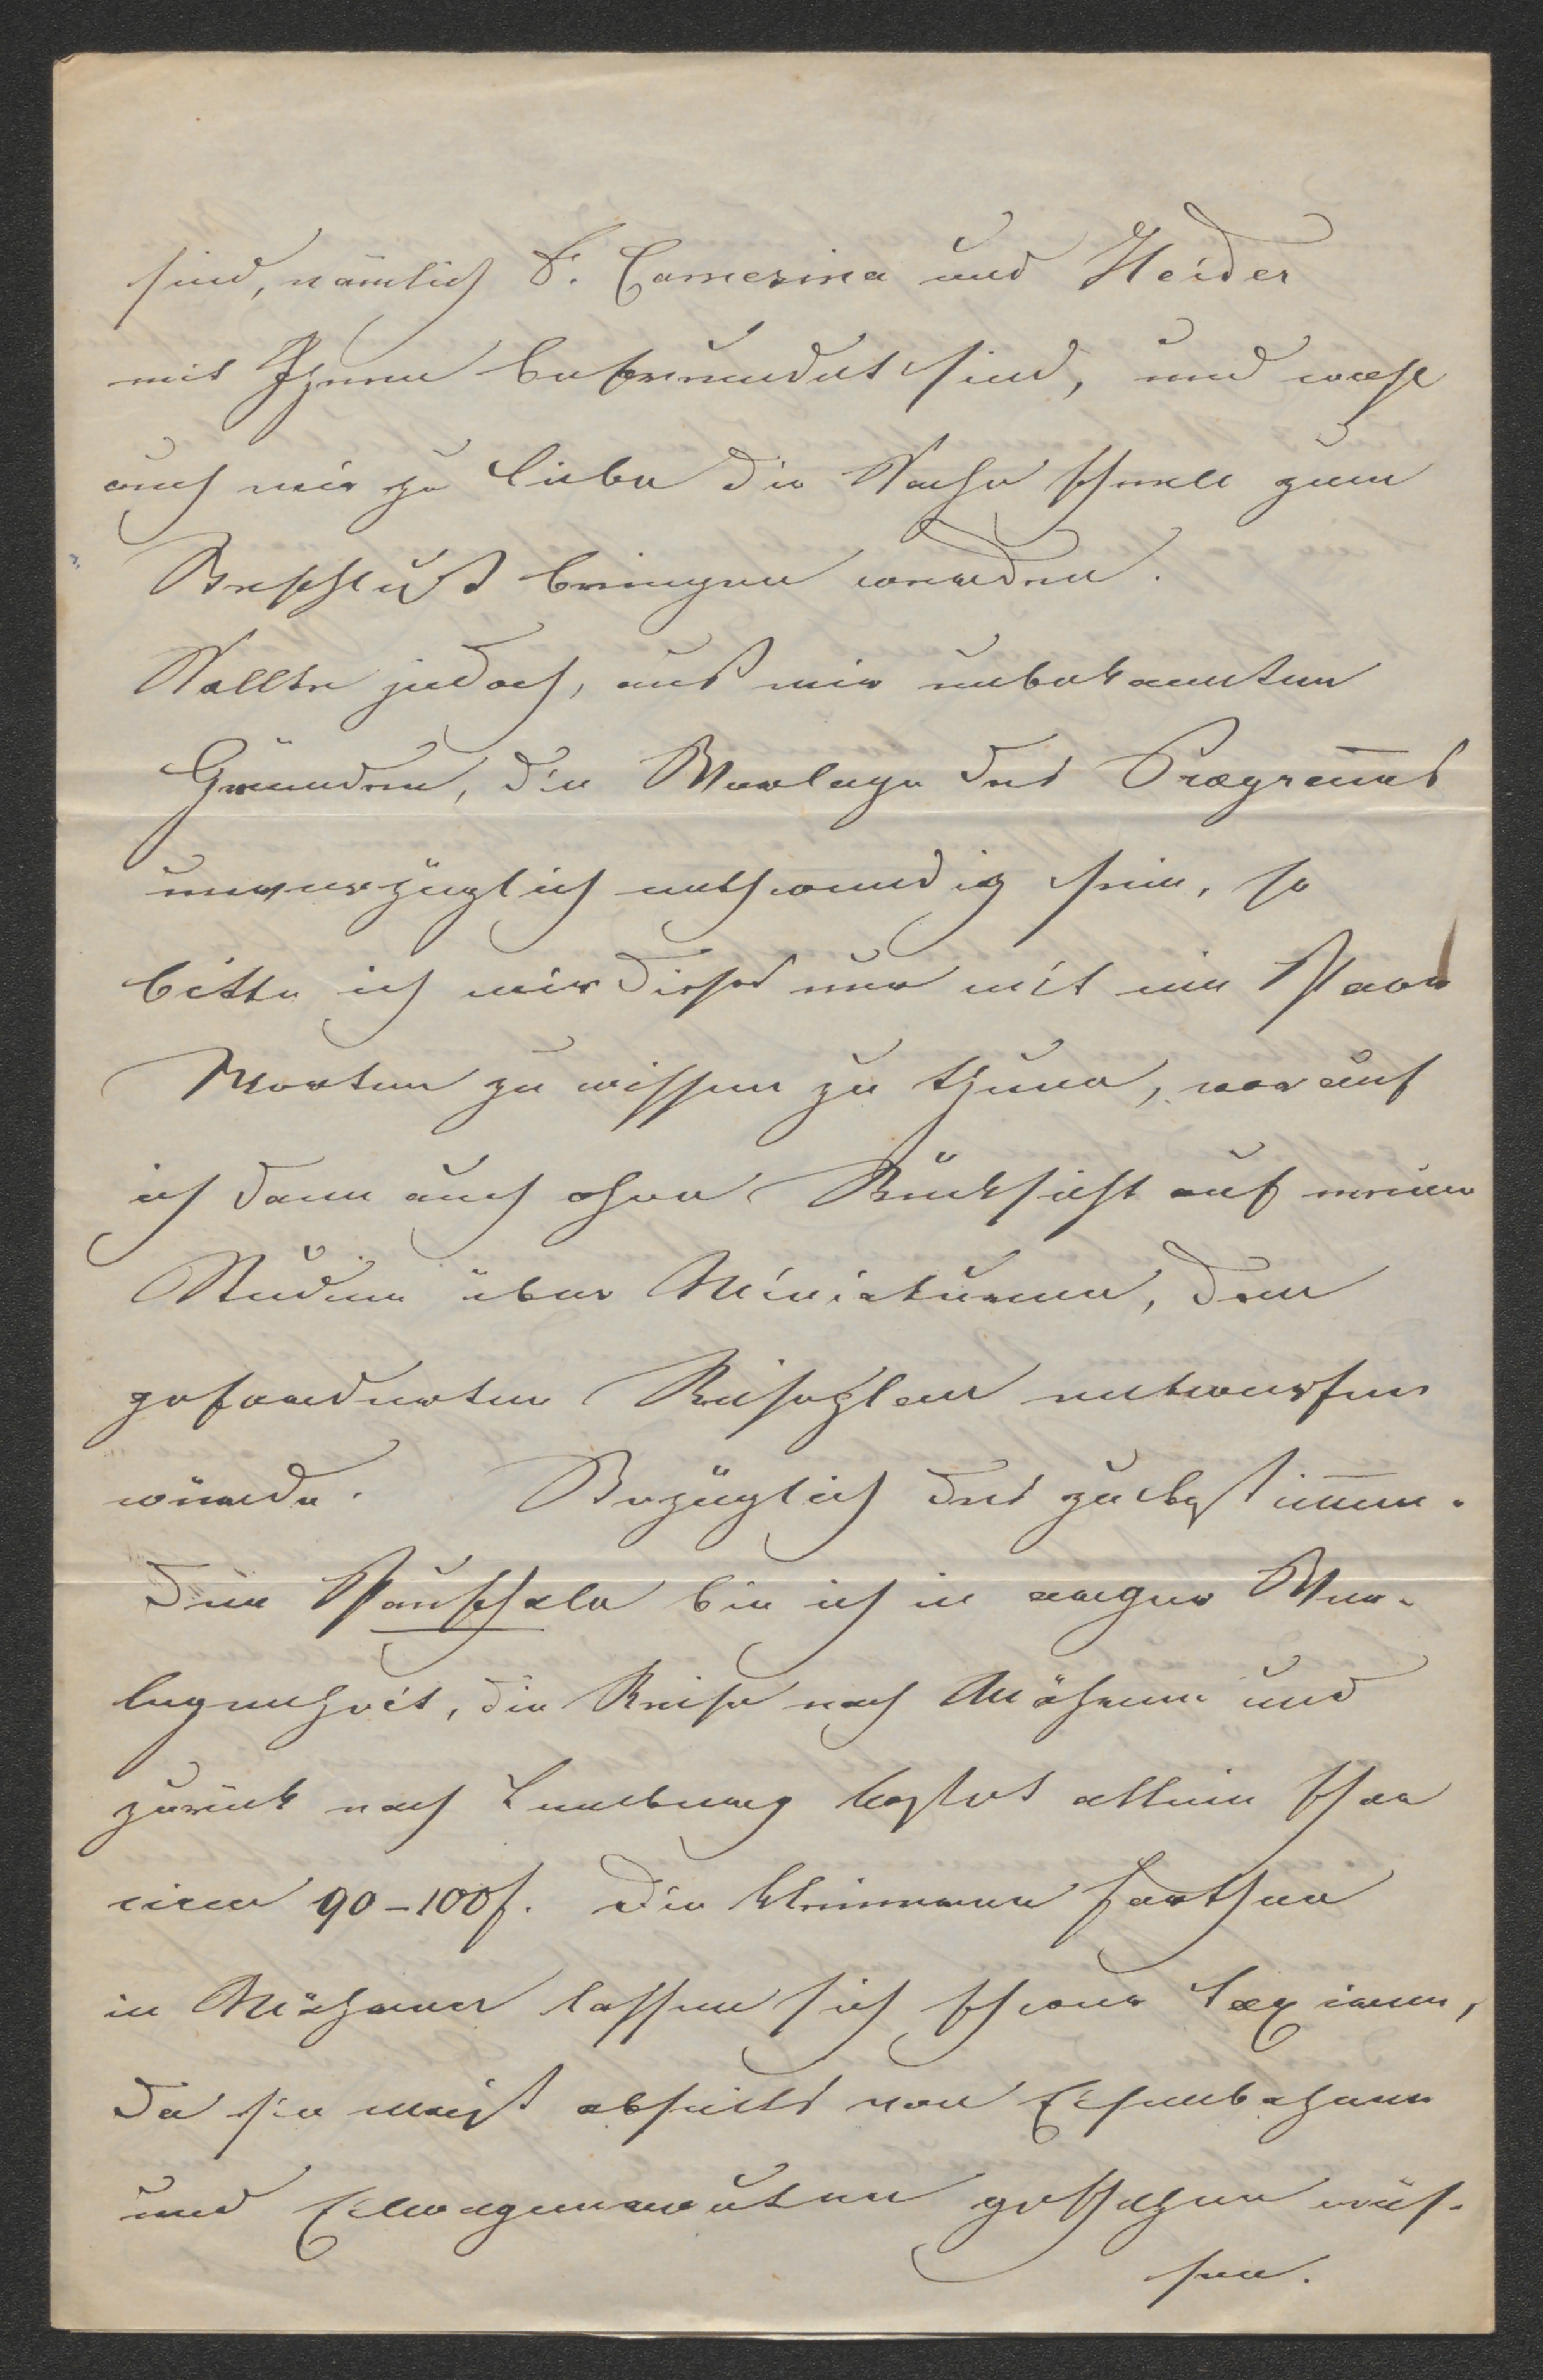 sind, nämlich H. Camesina und Heider
mit Ihnen befreundet sind, und wohl
auch mir zu liebe die Sache schnell zum
Beschluß bringen werden.
Sollte jedoch, aus mir unbekannten
Gründen, die Vorlage des Programs
unverzüglich nothwendig sein, so
bitte ich mir dieses nur mit ein Paar
Worten zu wissen zu thun, worauf
ich dann auch ohne Rücksicht auf meine
Studien über Miniaturen, den
geforderten Reiseplan entwerfen
würde. Bezüglich des zu bestimmen-
den Pauschale bin ich in arger Ver-
legenheit, die Reise nach Mähren und
zurück nach Lemberg kostet allein schon
circa 90-100 f. Die kleineren Fahrten
in Mähren lassen sich schwer taxieren,
da sie meist abseits von Eisenbahnen
und Eilwagenrouten geschehen müs-
sen.